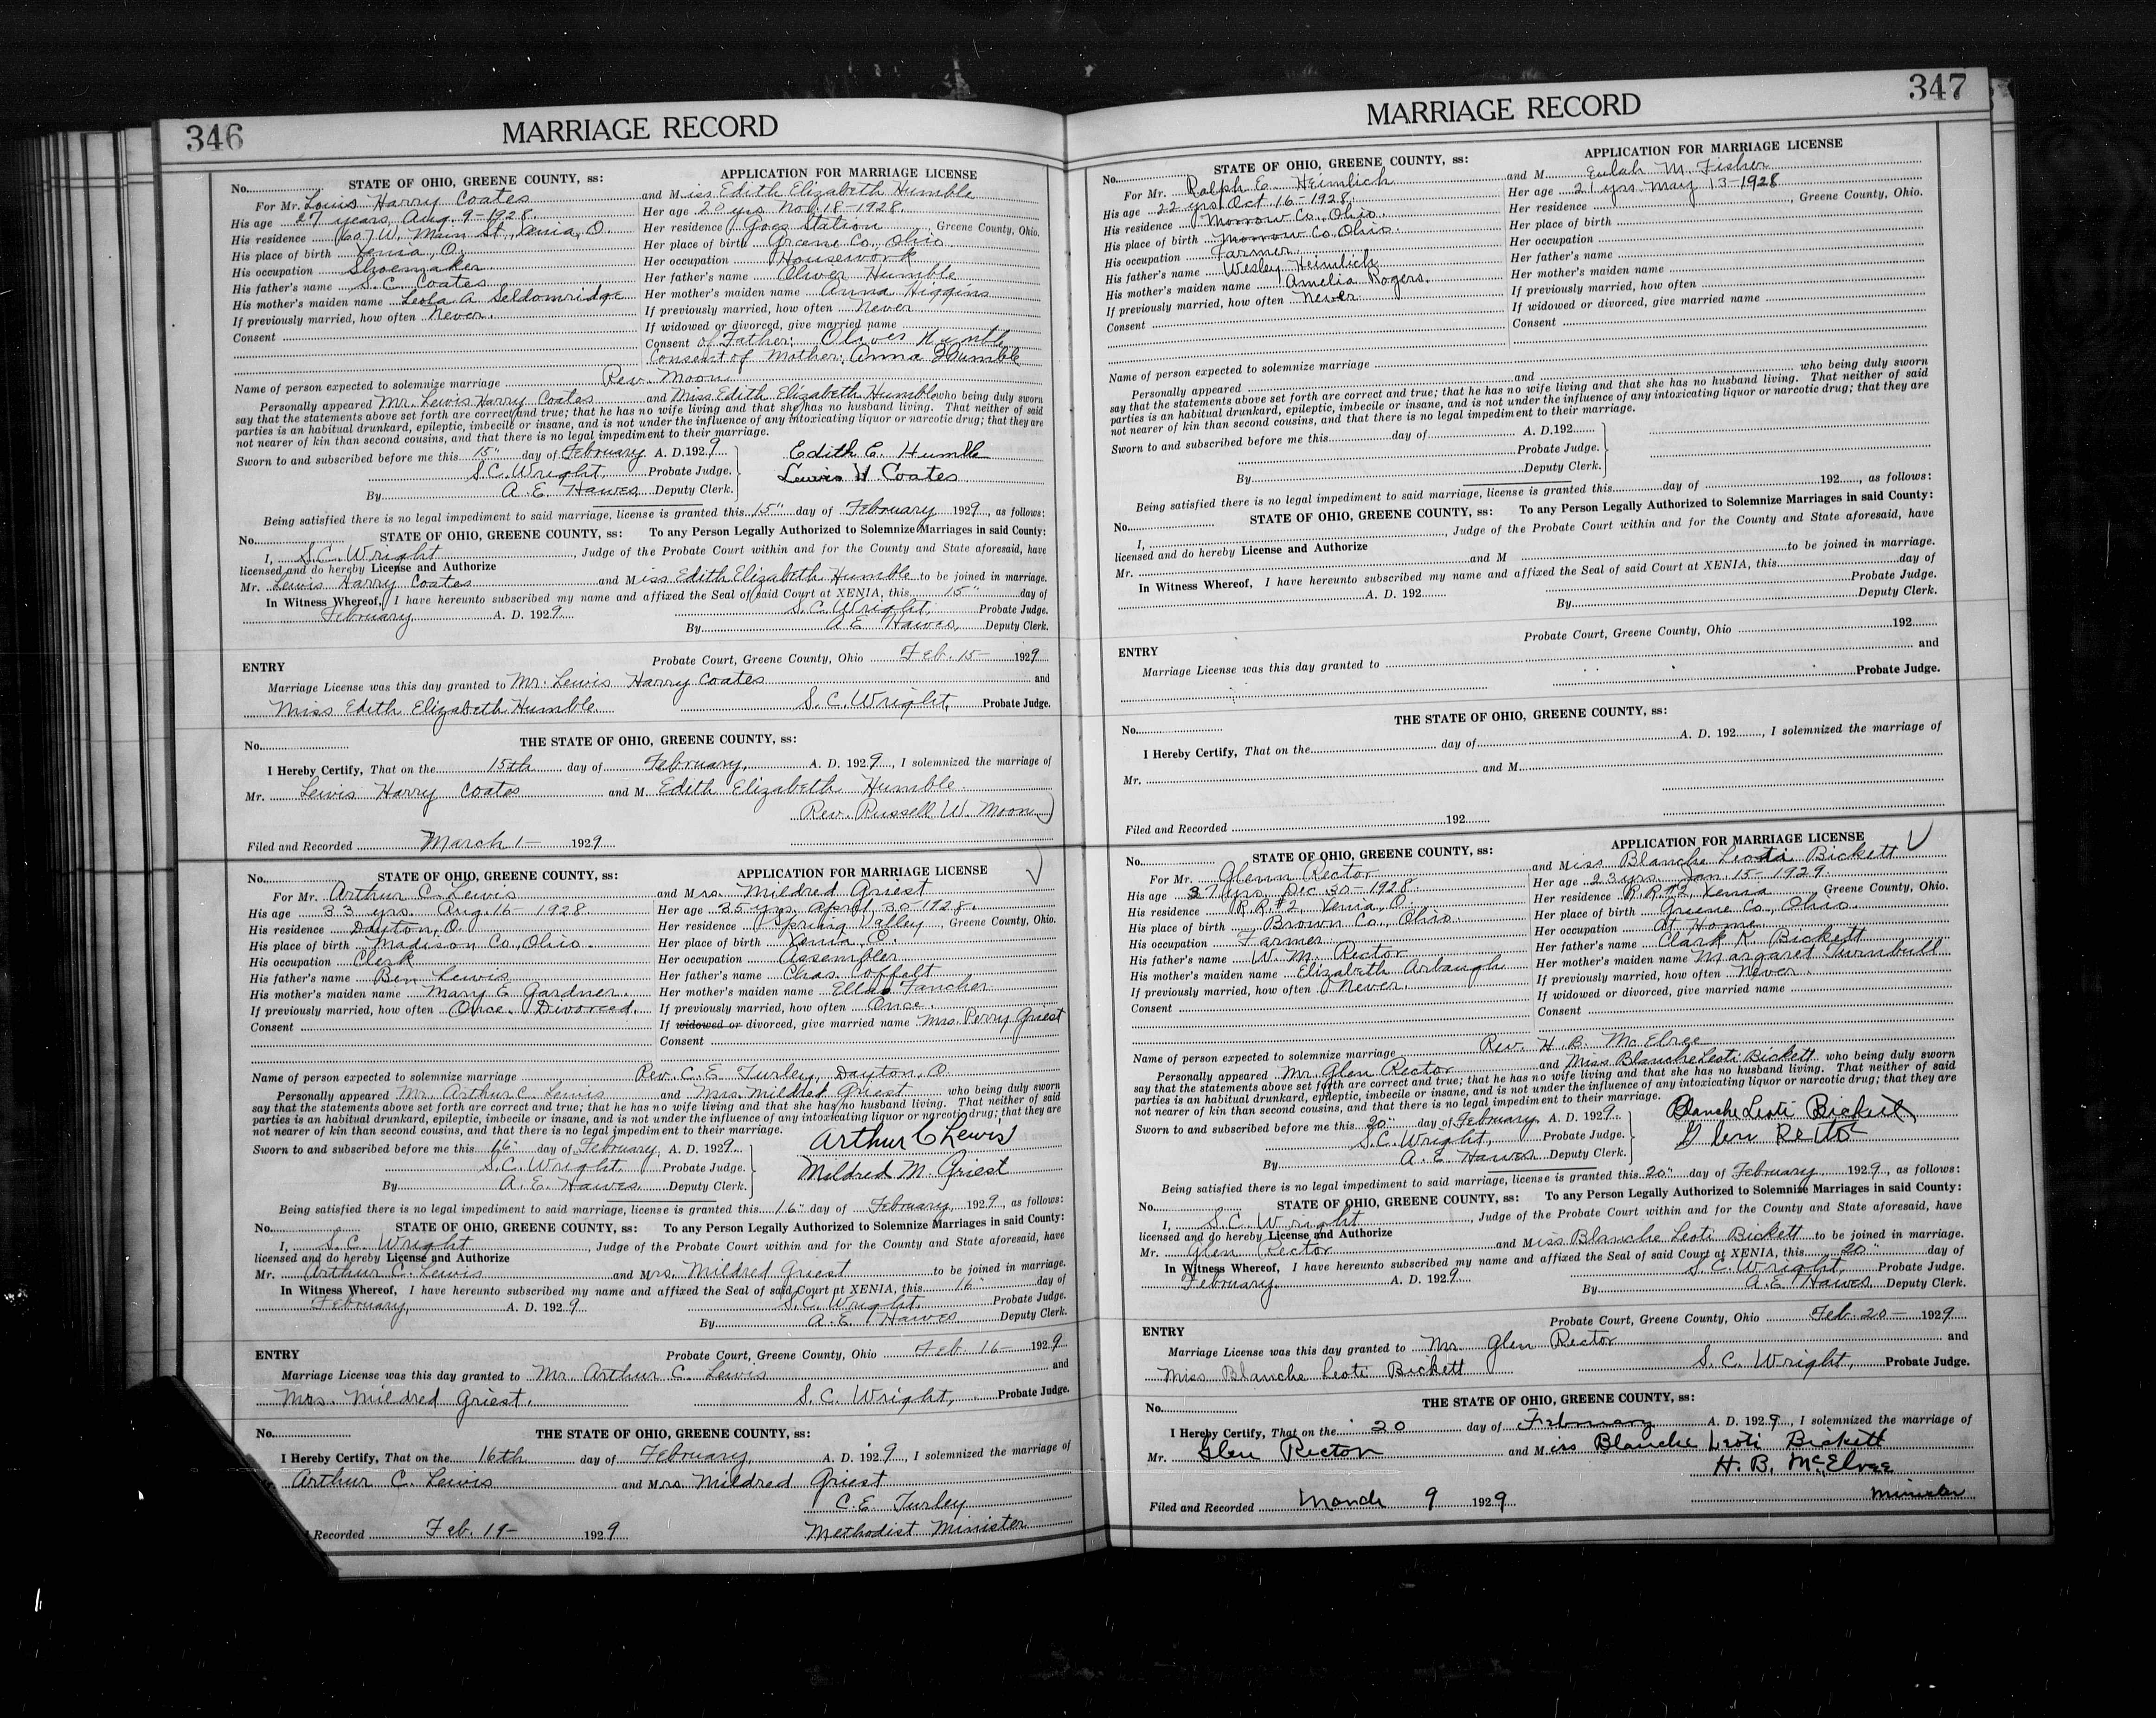 346
MARRIAGE RECORD
No. STATE OF OHIO, GREENE COUNTY, ss: APPLICATION FOR MARRIAGE LICENSE
For Mr. Louis Harry Coates and Miss Edith Elizabeth Humble
His age 27 years Aug. 9-1928. Her age 20 yrs. Nov. 18-1928.
His residence 607 W. Main St., Xenia, O. Her residence Goes Station, Greene County, Ohio.
His place of birth Xenia, O. Her place of birth Greene Co., Ohio
His occupation Shoemaker Her occupation Housework
His father's name S. C. Coates Her father's name Oliver Humble
His mother's maiden name Leola A Seldomridge Her mother's maiden name Anna Higgins
If previously married, how often Never. If previously married, how often Never
If widowed or divorced, give married name
Consent Consent of Father: Oliver Humble
Consent of Mother: Anna Humble
Name of person expected to solemnize marriage Rev. Moon
Personally appeared Mr. Lewis Harry Coates and Miss Edith Elizabeth Humble who being duly sworn
say that the statements above set forth are correct and true; that he has no wife living and that she has no husband living. That neither of said
parties is an habitual drunkard, epileptic, imbecile or insane, and is not under the influence of any intoxicating liquor or narcotic drug; that they are
not nearer of kin than second cousins, and that there is no legal impediment to their marriage.
Sworn to and subscribed before me this 15" day of February A. D. 1929 Edith E. Humble
S.C. Wright, Probate Judge. Lewis H. Coates
By A. E. Hawes Deputy Clerk.
Being satisfied there is no legal impediment to said marriage, license is granted this 15" day of February 1929, as follows:
No. STATE OF OHIO, GREENE COUNTY, ss: To any Person Legally Authorized to Solemnize Marriages in said County:
I, S.C. Wright, Judge of the Probate Court within and for the County and State aforesaid, have
licensed and do hereby License and Authorize
Mr. Lewis Harry Coates and Miss Edith Elizabeth Humble to be joined in marriage.
In Witness Whereof, I have hereunto subscribed my name and affixed the Seal of said Court at XENIA, this 15" day of
February A. D. 1929 S. C. Wright, Probate Judge.
By A E Hawes, Deputy Clerk.
ENTRY Probate Court, Greene County, Ohio Feb. 15- 1929
Marriage License was this day granted to Mr. Lewis Harry Coates and
Miss Edith Elizabeth Humble S. C. Wright, Probate Judge.
No. THE STATE OF OHIO, GREENE COUNTY, ss:
I Hereby Certify, That on the 15th day of February, A. D. 1929, I solemnized the marriage of
Mr. Lewis Harry Coates and M. Edith Elizabeth Humble.
Rev. Russell W. Moon
Filed and Recorded March 1- 1929
No. STATE OF OHIO, GREENE COUNTY, ss: APPLICATION FOR MARRIAGE LICENSE
For Mr. Arthur C. Lewis and Mrs. Mildred Griest
His age 33 yrs. Aug. 16- 1928 Her age 35 yrs. April 30-1928.
His residence Dayton, O. Her residence Spring Valley, Greene County, Ohio.
His place of birth Madison Co., Ohio. Her place of birth Xenia, O.
His occupation Clerk Her occupation Assembler
His father's name Ben Lewis Her father's name Chas. Coffelt
His mother's maiden name Mary E Gardner. Her mother's maiden name Ella Fancher
If previously married, how often Once. Divorced. If previously married, how often Once.
If widowed or divorced, give married name Mrs. Perry Griest
Consent Consent
Name of person expected to solemnize marriage Rev. C. E Turley, Dayton, O.
Personally appeared Mr. Arthur C. Lewis and Mrs. Mildred Griest who being duly sworn
say that the statements above set forth are correct and true; that he has no wife living and that she has no husband living. That neither of said
parties is an habitual drunkard, epileptic, imbecile or insane, and is not under the influence of any intoxicating liquor or narcotic drug; that they are
not nearer of kin than second cousins, and that there is no legal impediment to their marriage.
Sworn to and subscribed before me this 16" day of February A. D. 1929. Arthur C Lewis
S.C. Wright. Probate Judge. Mildred M. Griest
By A. E. Hawes Deputy Clerk.
Being satisfied there is no legal impediment to said marriage, license is granted this 16" day of February, 1929, as follows:
No. STATE OF OHIO, GREENE COUNTY, ss: To any Person Legally Authorized to Solemnize Marriages in said County:
I, S. C. Wright, Judge of the Probate Court within and for the County and State aforesaid, have
licensed and do hereby License and Authorize
Mr. Arthur C. Lewis and Mrs. Mildred Griest to be joined in marriage.
In Witness Whereof, I have hereunto subscribed my name and affixed the Seal of said Court at XENIA, this 16" day of
February, A. D. 1929 S. C. Wright. Probate Judge.
By A. E. Hawes Deputy Clerk.
ENTRY Probate Court, Greene County, Ohio Feb. 16- 1929
Marriage License was this day granted to Mr. Arthur C. Lewis and
Mrs. Mildred Griest. S. C. Wright, Probate Judge.
No. THE STATE OF OHIO, GREENE COUNTY, ss:
I Hereby Certify, That on the 16th day of February A. D. 1929, I solemnized the marriage of
Arthur C. Lewis and Mrs. Mildred Griest
C. E Turley
Recorded Feb. 19- 1929 Methodist Minister
347
MARRIAGE RECORD
No. STATE OF OHIO, GREENE COUNTY, ss: APPLICATION FOR MARRIAGE LICENSE
For Mr. Ralph E. Heimlich and M. Eulah M. Fisher
His age 22 yrs Oct 16-1928. Her age 21 yrs. May 13-1928
His residence Morrow Co., Ohio. Her residence , Greene County, Ohio.
His place of birth Morrow Co. Ohio. Her place of birth
His occupation Farmer Her occupation
His father's name Wesley Heimlich Her father's name
His mother's maiden name Amelia Rogers. Her mother's maiden name
If previously married, how often Never If previously married, how often
If widowed or divorced, give married name
Consent Consent
Name of person expected to solemnize marriage
Personally appeared and who being duly sworn
say that the statements above set forth are correct and true; that he has no wife living and that she has no husband living. That neither of said
parties is an habitual drunkard, epileptic, imbecile or insane, and is not under the influence of any intoxicating liquor or narcotic drug; that they are
not nearer of kin than second cousins, and that there is no legal impediment to their marriage.
Sworn to and subscribed before me this day of A. D. 192
Probate Judge.
By Deputy Clerk.
Being satisfied there is no legal impediment to said marriage, license is granted this day of 192 , as follows:
No. STATE OF OHIO, GREENE COUNTY, ss: To any Person Legally Authorized to Solemnize Marriages in said County:
I, , Judge of the Probate Court within and for the County and State aforesaid, have
licensed and do hereby License and Authorize
Mr. and M to be joined in marriage.
In Witness Whereof, I have hereunto subscribed my name and affixed the Seal of said Court at XENIA, this day of
A. D. 192 Probate Judge.
By Deputy Clerk.
ENTRY Probate Court, Greene County, Ohio 192
Marriage License was this day granted to and
Probate Judge.
No. THE STATE OF OHIO, GREENE COUNTY, ss:
I Hereby Certify, That on the day of A. D. 192 , I solemnized the marriage of
Mr. and M.
Filed and Recorded 192
No. STATE OF OHIO, GREENE COUNTY, ss: APPLICATION FOR MARRIAGE LICENSE
For Mr. Glenn Rector and Miss Blanche Leota Bickett
His age 37 yrs. Dec. 30-1928. Her age 23 yrs. Jan 15-1929.
His residence R. R. #2, Xenia, O. Her residence R. R. #2, Xenia, Greene County, Ohio.
His place of birth Brown Co., Ohio. Her place of birth Greene Co., Ohio.
His occupation Farmer Her occupation At Home
His father's name W. M. Rector Her father's name Clark K. Bickett
His mother's maiden name Elizabeth Arbaugh Her mother's maiden name Margaret Turnbull
If previously married, how often Never. If previously married, how often Never.
If widowed or divorced, give married name
Consent Consent
Name of person expected to solemnize marriage Rev. H. B. McElree
Personally appeared Mr. Glen Rector and Miss Blanche Leoti Bickett who being duly sworn
say that the statements above set forth are correct and true; that he has no wife living and that she has no husband living. That neither of said
parties is an habitual drunkard, epileptic, imbecile or insane, and is not under the influence of any intoxicating liquor or narcotic drug; that they are
not nearer of kin than second cousins, and that there is no legal impediment to their marriage.
Sworn to and subscribed before me this 20" day of February A. D. 1929. Blanche Leoti Bickett
S.C. Wright, Probate Judge. Glen Rector
By A. E Hawes Deputy Clerk.
Being satisfied there is no legal impediment to said marriage, license is granted this 20" day of February 1929, as follows:
No. STATE OF OHIO, GREENE COUNTY, ss: To any Person Legally Authorized to Solemnize Marriages in said County:
I, S.C. Wright, Judge of the Probate Court within and for the County and State aforesaid, have
licensed and do hereby License and Authorize
Mr. Glen Rector and Miss Blanche Leoti Bickett to be joined in marriage.
In Witness Whereof, I have hereunto subscribed my name and affixed the Seal of said Court at XENIA, this 20" day of
February A. D. 1929 S. C. Wright, Probate Judge.
By A. E Hawes Deputy Clerk.
ENTRY Probate Court, Greene County, Ohio Feb. 20- 1929
Marriage License was this day granted to Mr. Glen Rector and
Miss Blanche Leoti Bickett S. C. Wright, Probate Judge.
No. THE STATE OF OHIO, GREENE COUNTY, ss:
I Hereby Certify, That on the 20 day of February A. D. 1929, I solemnized the marriage of
Mr. Glen Rector and Miss Blanche Leoti Bickett
H. B. McElree
Filed and Recorded March 9 1929 Minister